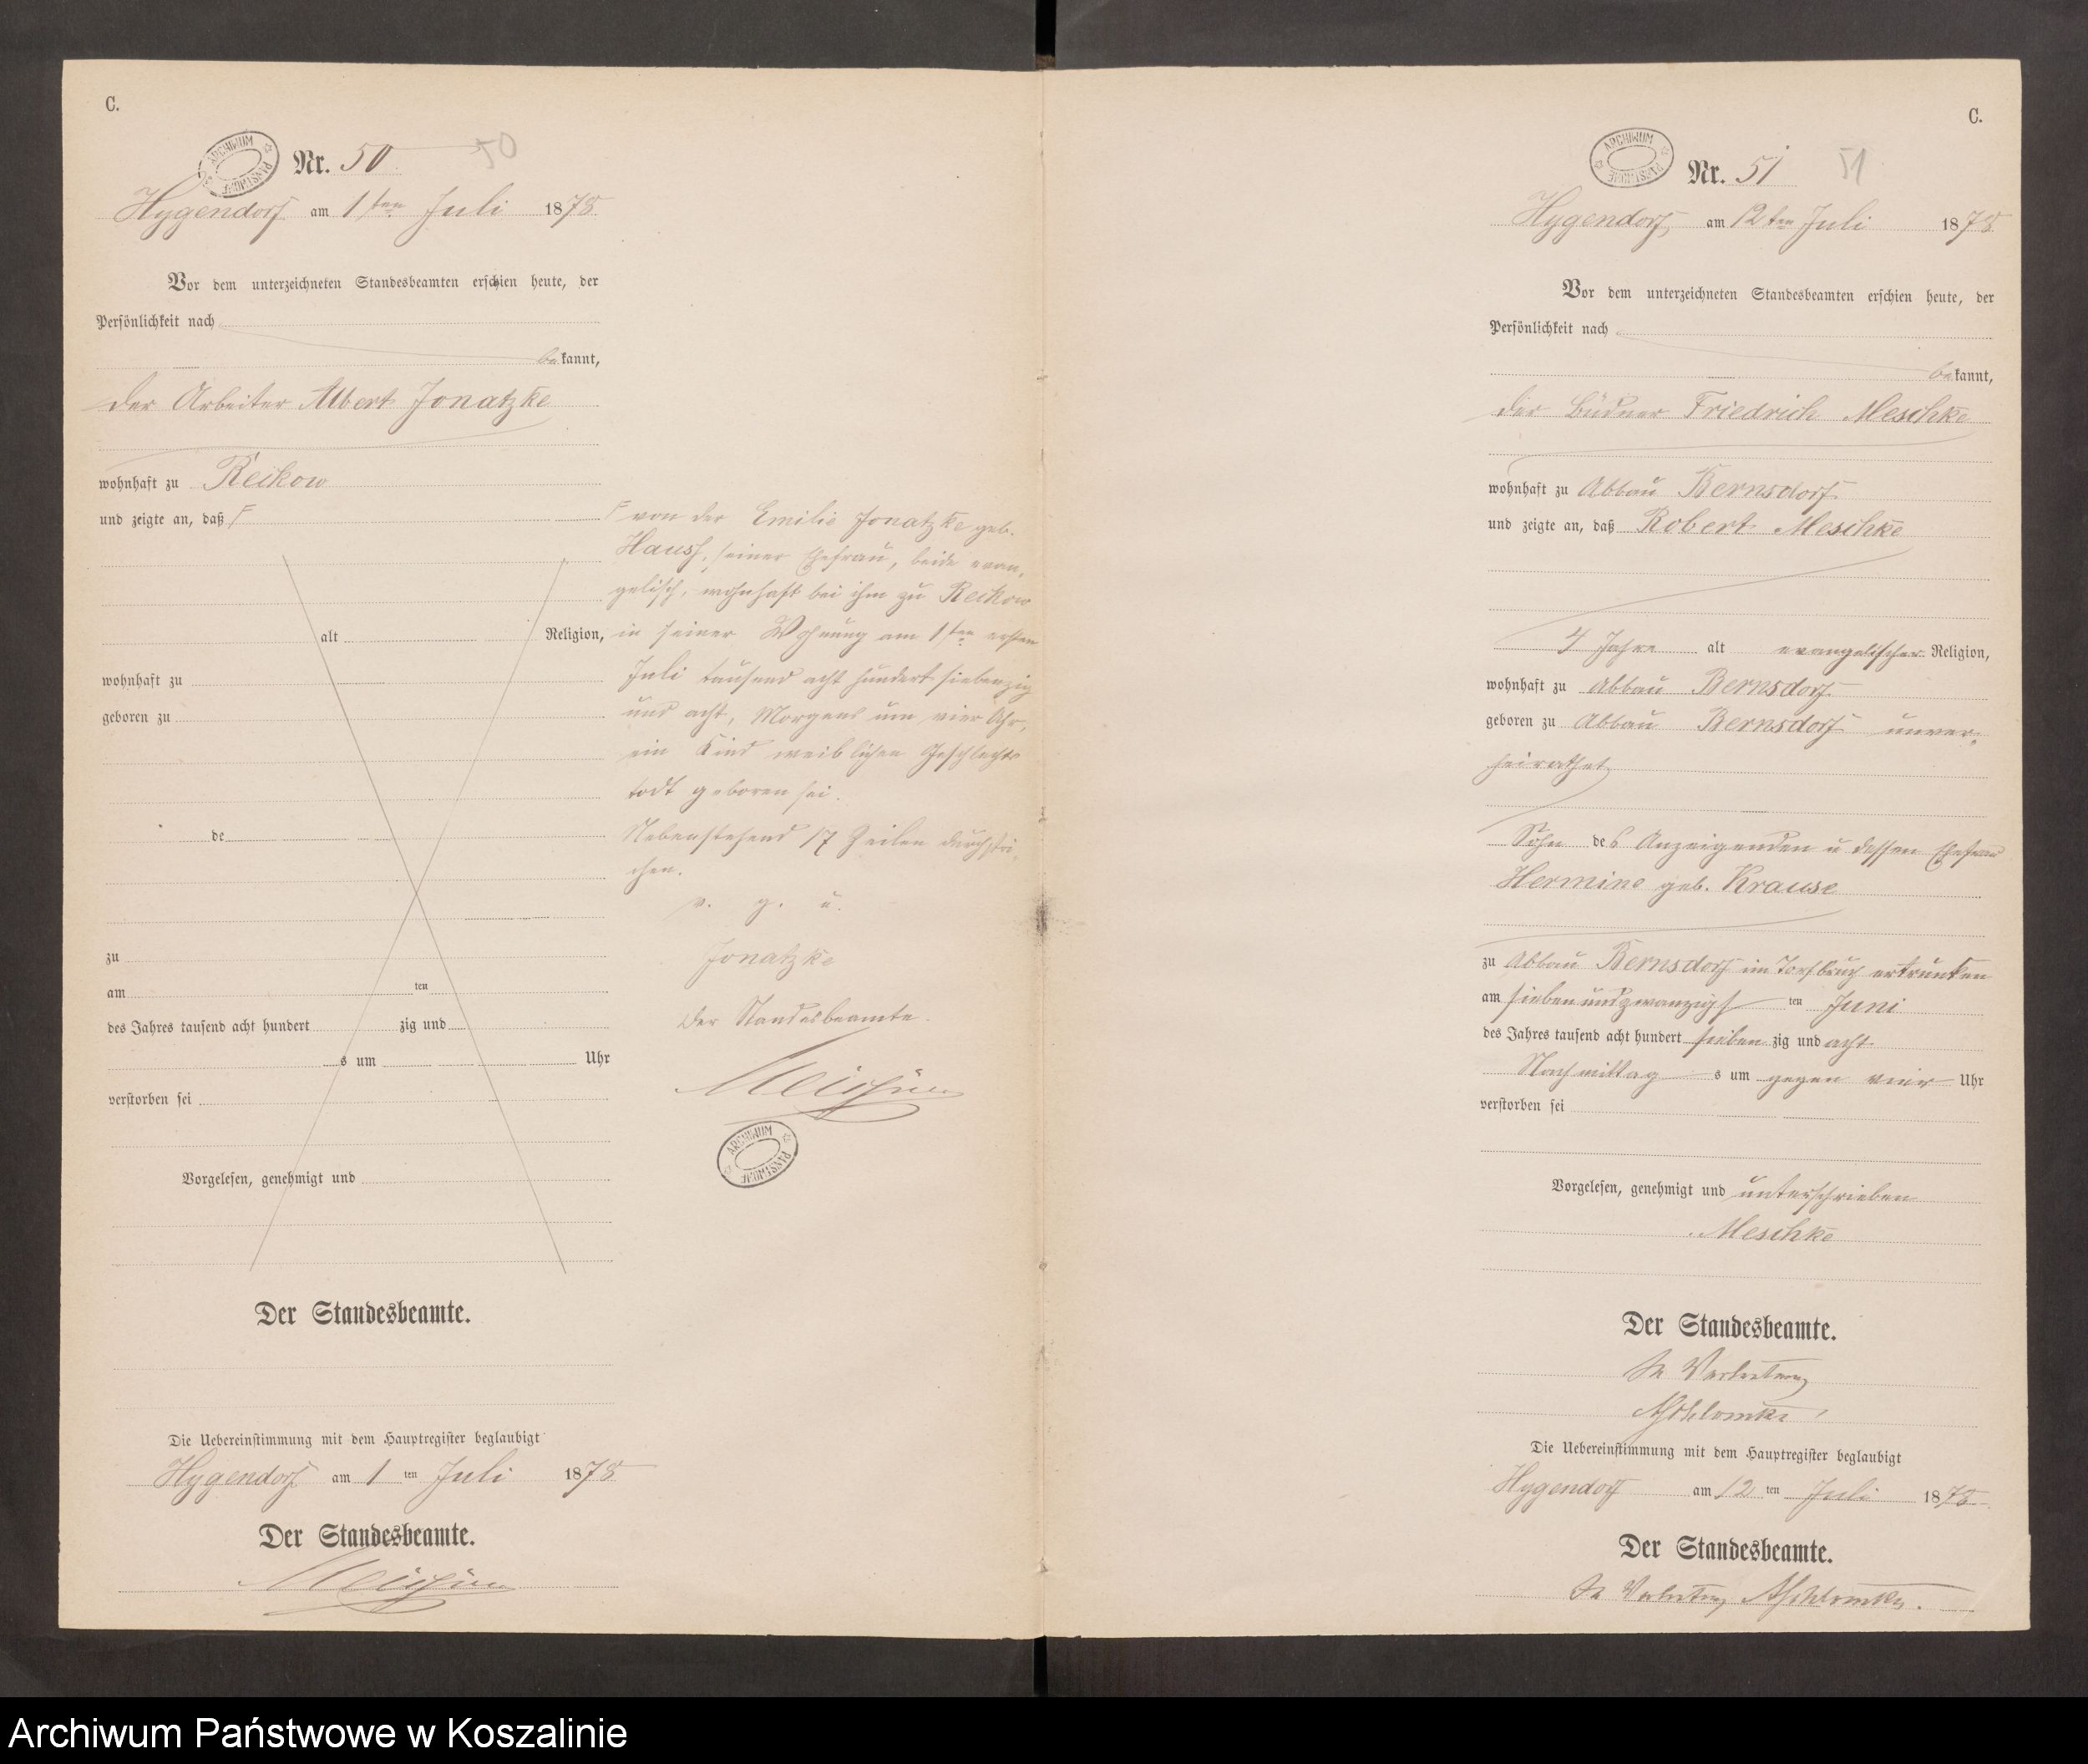 C.
ARCHIWUM PAŃSTWOWE
Nr. 50 50
Hygendorf am 1ten Juli 1878
Vor dem unterzeichneten Standesbeamten erschien heute, der
Persönlichkeit nach
bekannt,
der Arbeiter Albert Jonatzke
wohnhaft zu Reckow
und zeigte an, daß F
alt Religion,
wohnhaft zu
geboren zu
de
zu
am ten
des Jahres tausend acht hundert zig und
s um Uhr
verstorben sei
Vorgelesen, genehmigt und
Der Standesbeamte.
Die Uebereinstimmung mit dem Hauptregister beglaubigt
Hygendorf am 1 ten Juli 1878
Der Standesbeamte.
F von der Emilie Jonatzke geb.
seiner Ehefrau, beide evan-
gelisch, wohnhaft bei ihm zu Reckow
in seiner Wohnung am 1ten ersten
Juli tausend acht hundert siebenzig
und acht, Morgens um vier Uhr,
ein Kind weiblichen Geschlechts
todt geboren sei.
Nebenstehend 17 Zeilen durchstri-
chen.
v. g. u.
Jonatzke
Der Standesbeamte.
ARCHIWUM PAŃSTWOWE
C.
ARCHIWUM PAŃSTWOWE
Nr. 51 51
Hygendorf, am 12ten Juli 1878
Vor dem unterzeichneten Standesbeamten erschien heute, der
Persönlichkeit nach
bekannt,
der Büdner Friedrich Meschke
wohnhaft zu Abbau Bernsdorf
und zeigte an, daß Robert Meschke
4 Jahre alt evangelischer Religion,
wohnhaft zu Abbau Bernsdorf
geboren zu Abbau Bernsdorf unver-
heirathet
Sohn des Anzeigenden u dessen Ehefrau
Hermine geb. Krause
zu Abbau Bernsdorf im Torfbruch ertrunken
am siebenundzwanzigs ten Juni
des Jahres tausend acht hundert sieben zig und acht
Nachmittag s um gegen vier Uhr
verstorben sei
Vorgelesen, genehmigt und unterschrieben
Meschke
Der Standesbeamte.
In Vertretung
Die Uebereinstimmung mit dem Hauptregister beglaubigt
Hygendorf am 12 ten Juli 1878
Der Standesbeamte.
In Vertretung
Archiwum Państwowe w Koszalinie